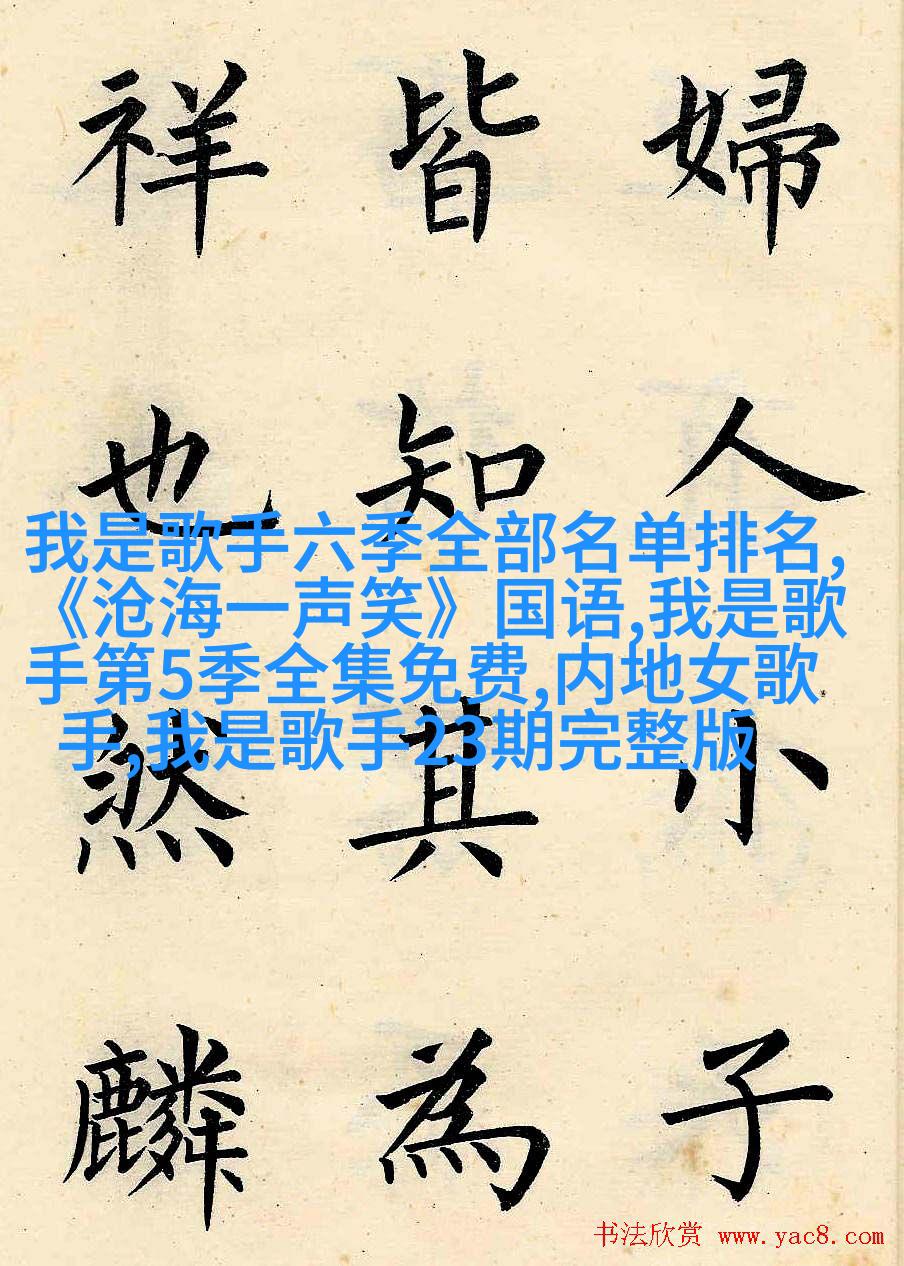 婦人小子
皆知其為
祥也然麟
我是歌手六季全部名单排名,
《沧海一声笑》国语,我是歌
手第5季全集免费,内地女歌
手,我是歌手23期完整版
书法欣赏 www.yac8.com